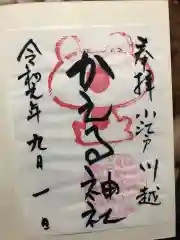 奉拝 小江戸川越
かえる神社
令和元年 九月 一日